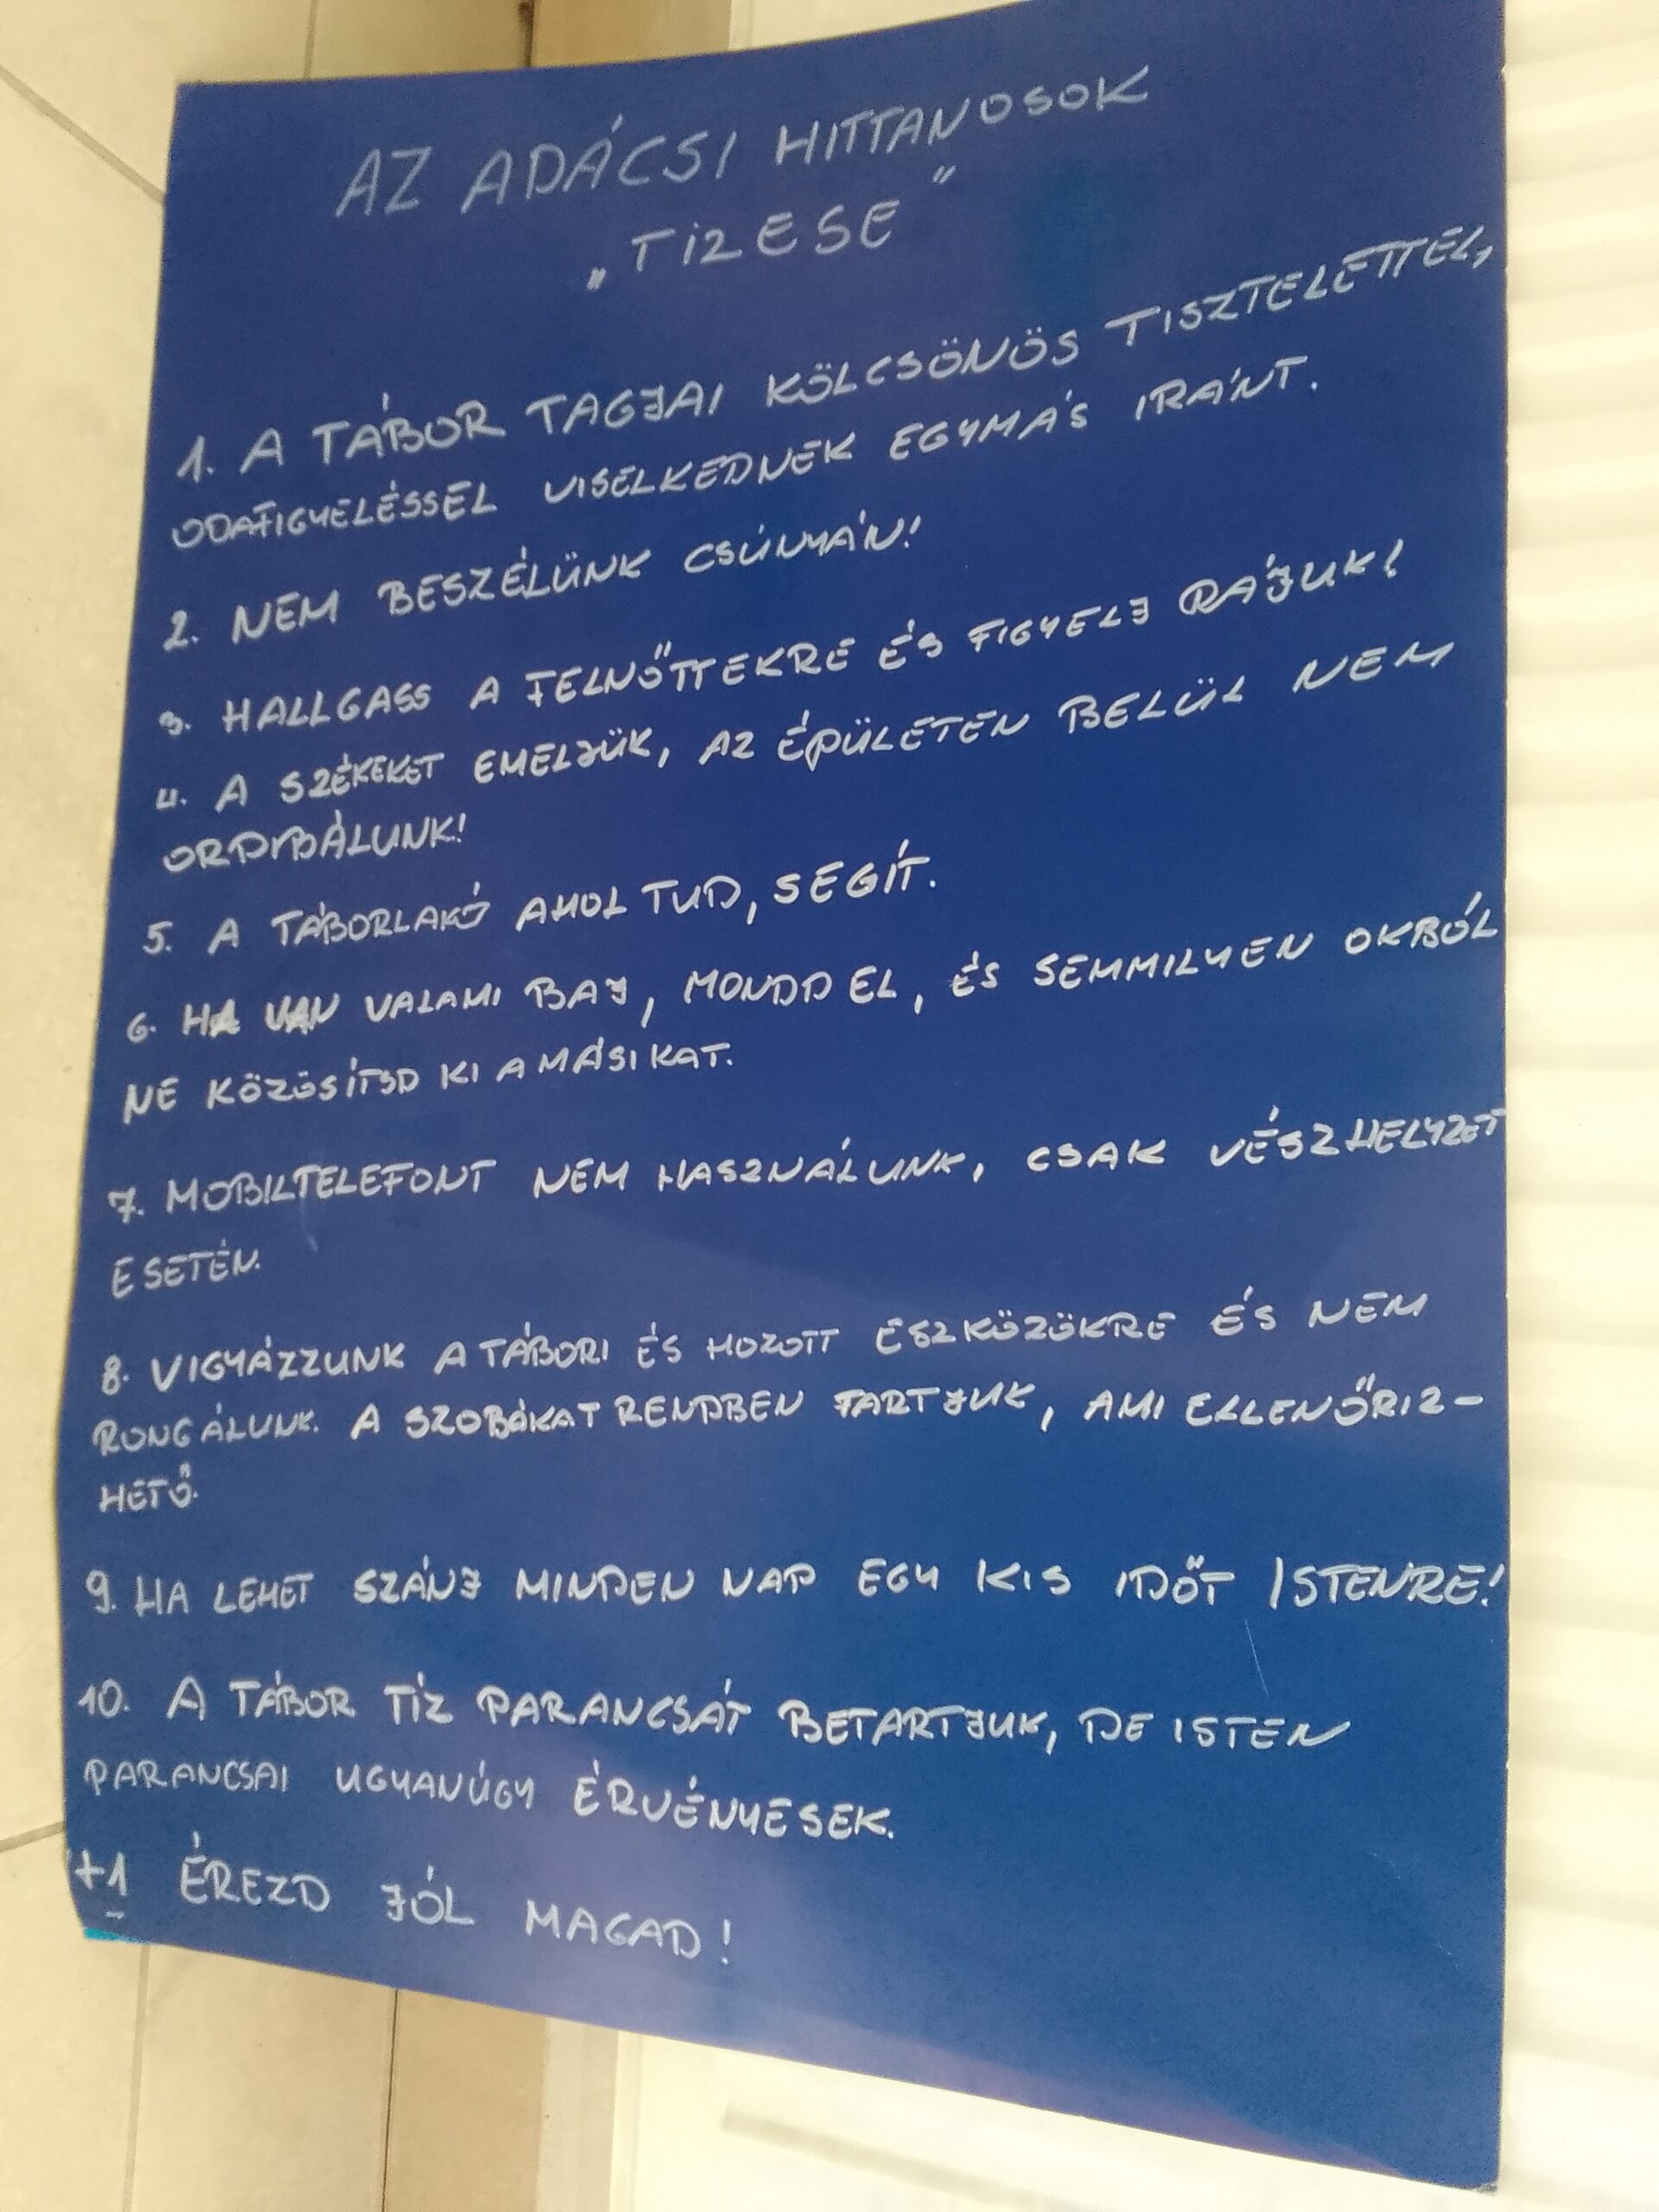 AZ ADÁCSI HITTANOSOK
„TÍZESE"
1. A TÁBOR TAGJAI KÖLCSÖNÖS TISZTELETTEL,
ODAFIGYELÉSSEL VISELKEDNEK EGYMÁS IRÁNT.
2. NEM BESZÉLÜNK CSÚNYÁN!
3. HALLGASS A FELNŐTTEKRE ÉS FIGYELJ RÁJUK!
4. A SZÉKEKET EMELJÜK, AZ ÉPÜLETEN BELÜL NEM
ORDIBÁLUNK!
5. A TÁBORLAKÓ AHOL TUD, SEGÍT.
6. HA VAN VALAMI BAJ, MONDD EL, ÉS SEMMILYEN OKBÓL
NE KÖZÖSÍTSD KI A MÁSIKAT.
7. MOBILTELEFONT NEM HASZNÁLUNK, CSAK VÉSZHELYZET
ESETÉN.
8. VIGYÁZZUNK A TÁBORI ÉS HOZOTT ESZKÖZÖKRE ÉS NEM
RONGÁLUNK. A SZOBÁKAT RENDBEN TARTJUK, AMI ELLENŐRIZ-
HETŐ.
9. HA LEHET SZÁNJ MINDEN NAP EGY KIS IDŐT ISTENRE!
10. A TÁBOR TÍZ PARANCSÁT BETARTJUK, DE ISTEN
PARANCSAI UGYANÚGY ÉRVÉNYESEK.
+1 ÉREZD JÓL MAGAD!